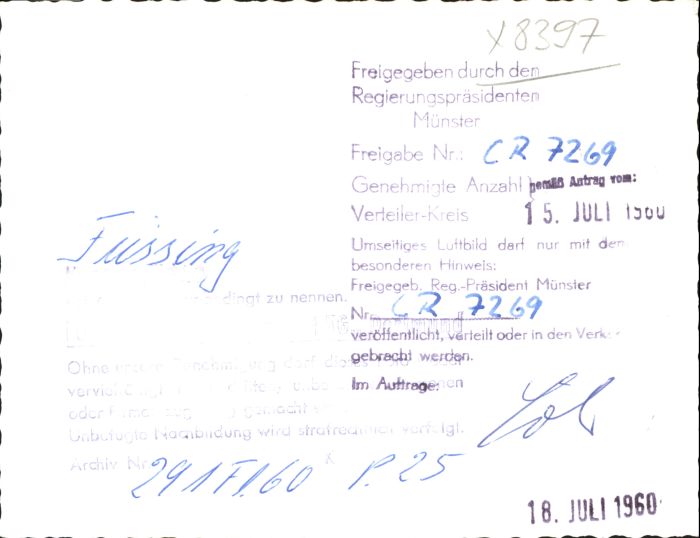 X8397
Freigegeben durch den
Regierungspräsidenten
Münster
Freigabe Nr.: CR 7269
Genehmigte Anzahl gemäß Antrag vom:
Verteiler-Kreis 15. JULI 1960
Umseitiges Luftbild darf nur mit dem
besonderen Hinweis:
Freigegeb. Reg.-Präsident Münster
Nr. CR 7269
veröffentlicht, verteilt oder in den Verkehr
gebracht werden.
Im Auftrage:
Füssing
unbedingt zu nennen.
Ohne unsere Genehmigung darf dieses
oder
gemacht
Unbefugte Nachbildung wird strafrechtlich verfolgt.
Archiv Nr. 291F1.60 P.25
18. JULI 1960